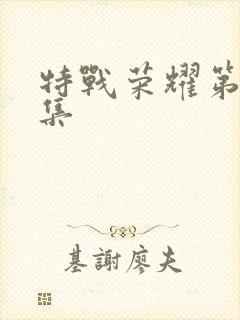 特戰荣耀第
集
基謝廖夫